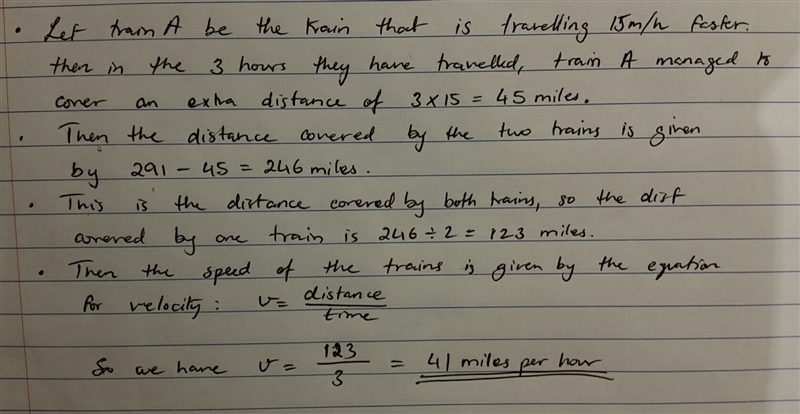 • Let train A be the train that is travelling 15m/h faster.
then in the 3 hours they have travelled, train A managed to
cover an extra distance of 3 x 15 = 45 miles.
• Then the distance covered by the two trains is given
by 291 - 45 = 246 miles.
• This is the distance covered by both trains, so the dist
covered by one train is 246 ÷ 2 = 123 miles.
• Then the speed of the trains is given by the equation
for velocity: v = distance / time
So we have v = 123 / 3 = 41 miles per hour